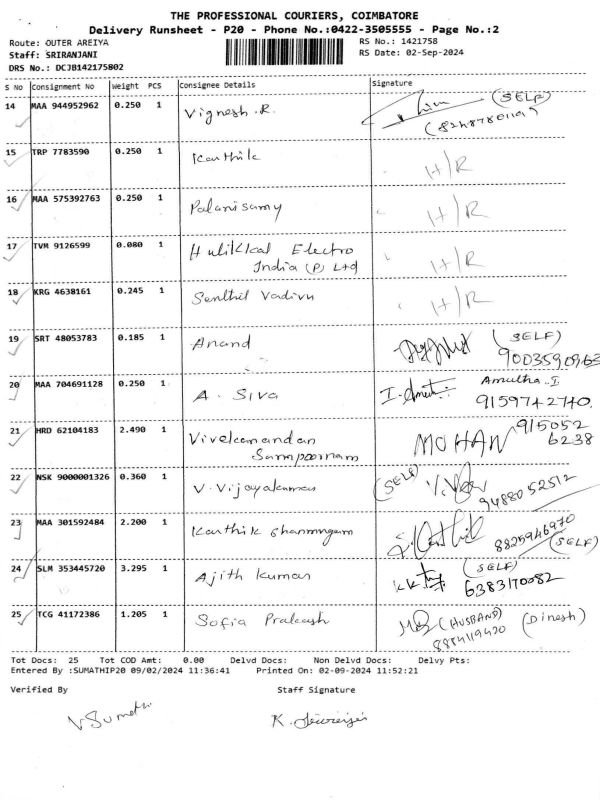 THE PROFESSIONAL COURIERS, COIMBATORE
Delivery Runsheet - P20 - Phone No.:0422-3505555 - Page No.:2
Route: OUTER AREIYA RS No.: 1421758
Staff: SRIRANJANI RS Date: 02-Sep-2024
DRS No.: DCJB142175802
S No Consignment No Weight PCS Consignee Details Signature
14 MAA 944952962 0.250 1 Vignesh.R. (SELF)
15 TRP 7783590 0.250 1 Karthik H/R
16 MAA 575392763 0.250 1 Palanisamy H/R
17 TVM 9126599 0.080 1 Hulikkal Electro H/R
India (P) Ltd
18 KRG 4638161 0.245 1 Senthil Vadivu H/R
19 SRT 48053783 0.185 1 Anand (SELF)
9003590963
20 MAA 704691128 0.250 1 A. Siva Amutha. I
9159742740.
21 HRD 62104183 2.490 1 Vivekanandan MOHAN 915052
Sampoornam 6238
22 NSK 9000001326 0.360 1 V. Vijayakumar (SELF)
9488052512
23 MAA 301592484 2.200 1 Karthik Shanmugam 8825946970
(SELF)
24 SLM 353445720 3.295 1 Ajith Kumar (SELF)
6383170082
25 TCG 41172386 1.205 1 Sofia Prakash (HUSBAND) (Dinesh)
Tot Docs: 25 Tot COD Amt: 0.00 Delvd Docs: Non Delvd Docs: Delvy Pts:
Entered By :SUMATHIP20 09/02/2024 11:36:41 Printed On: 02-09-2024 11:52:21
Verified By Staff Signature
V Sumathi